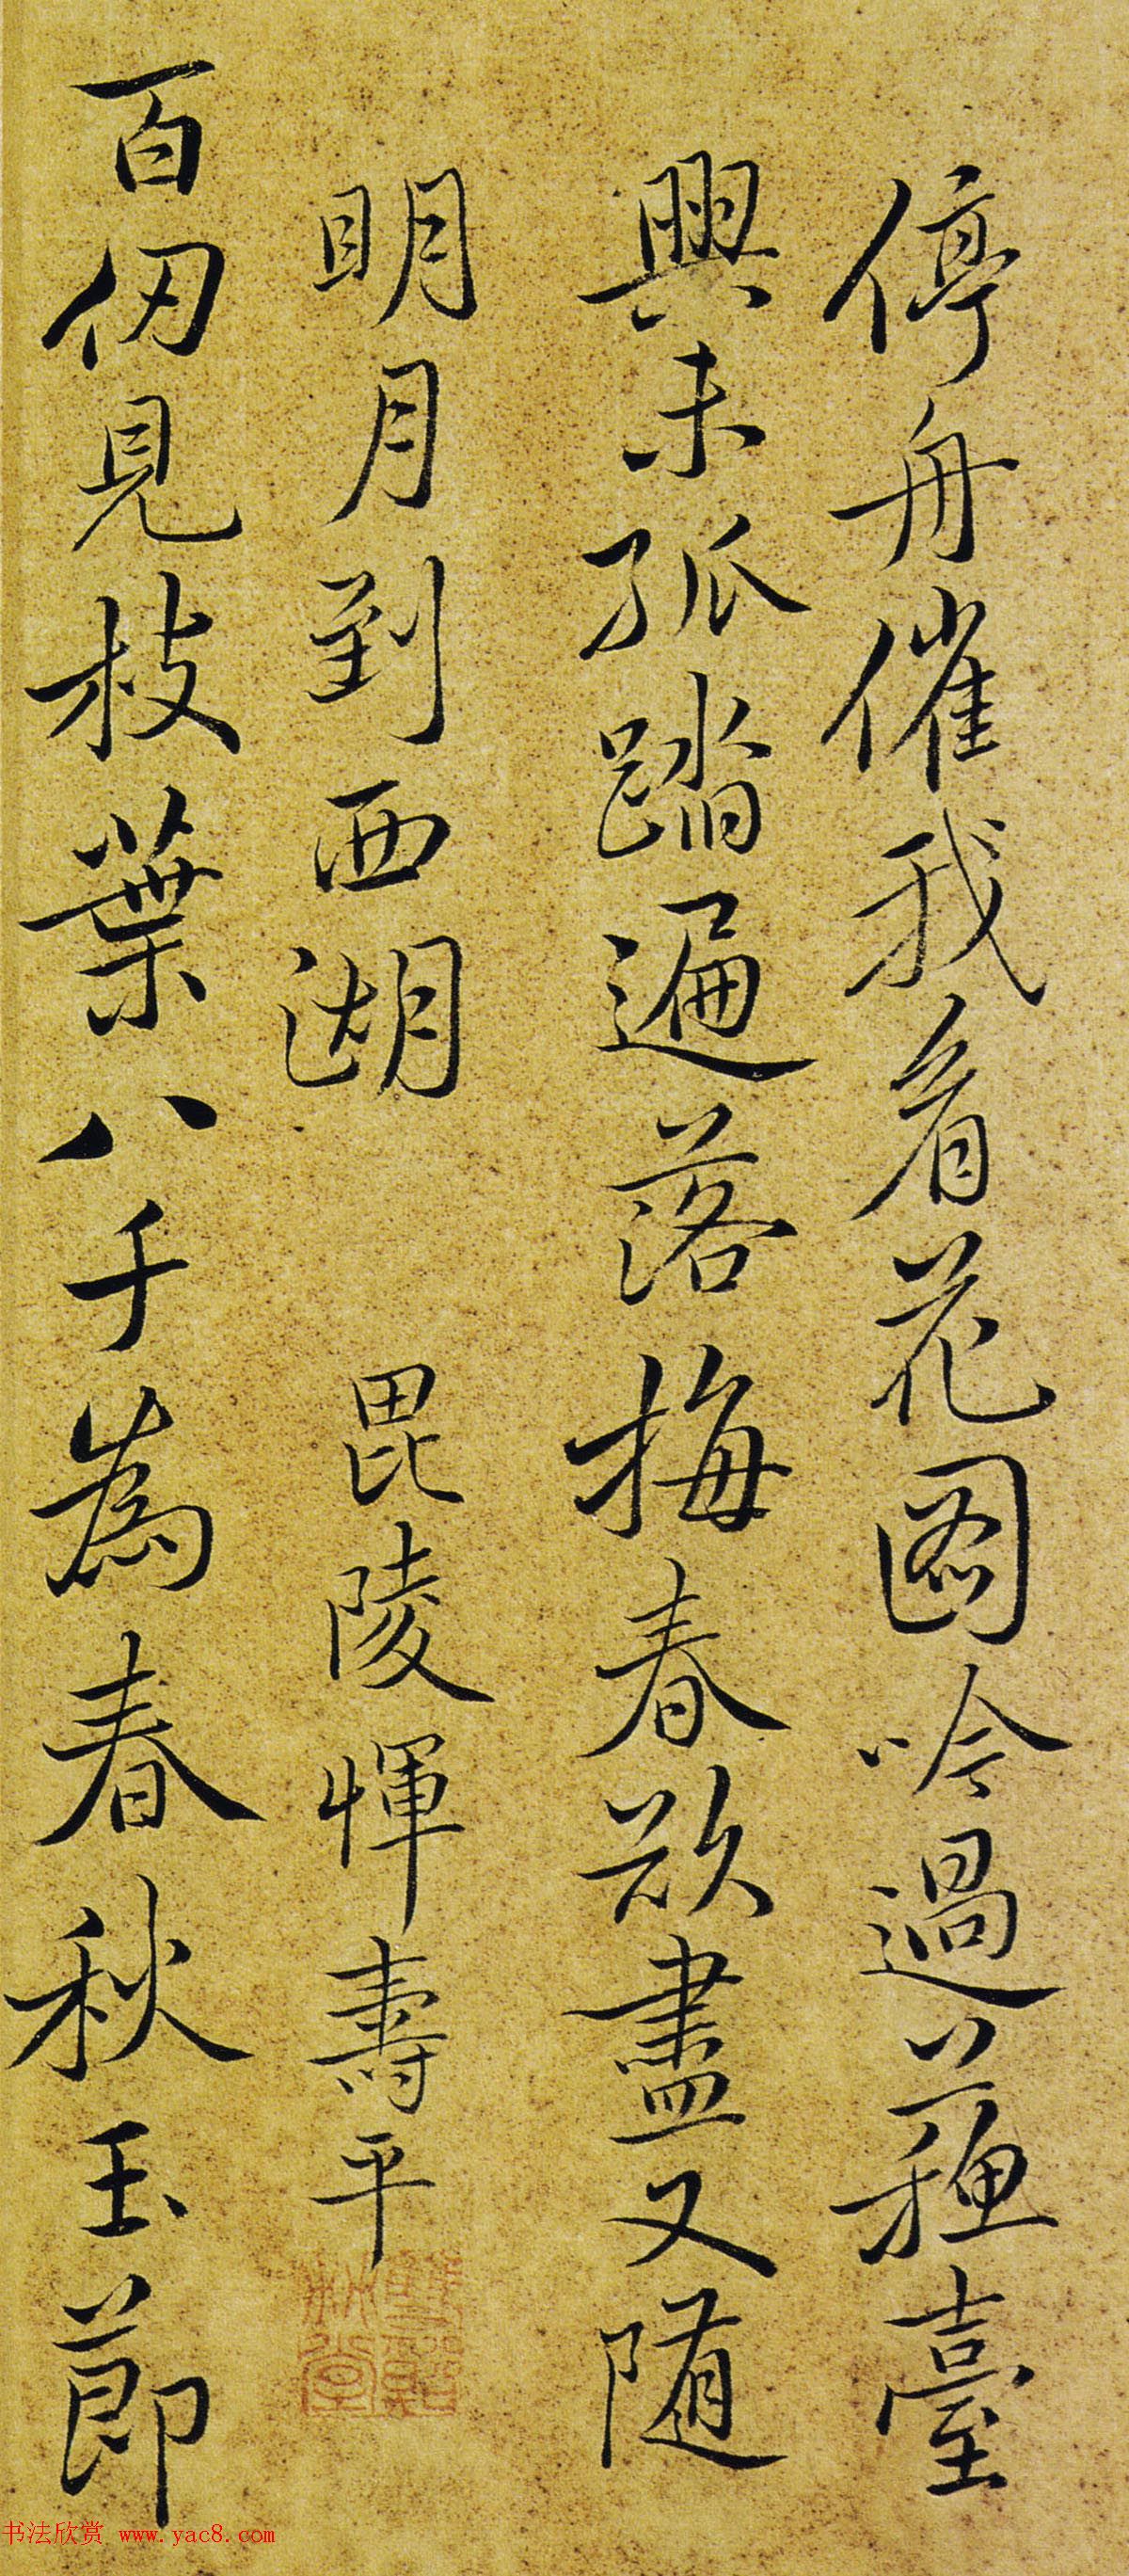 停舟催我看花圖吟過蘇臺
興未孤踏遍落梅春欲盡又隨
明月到西湖 毘陵惲壽平
百仞見枝葉八千為春秋玉節
书法欣赏 www.yac8.com